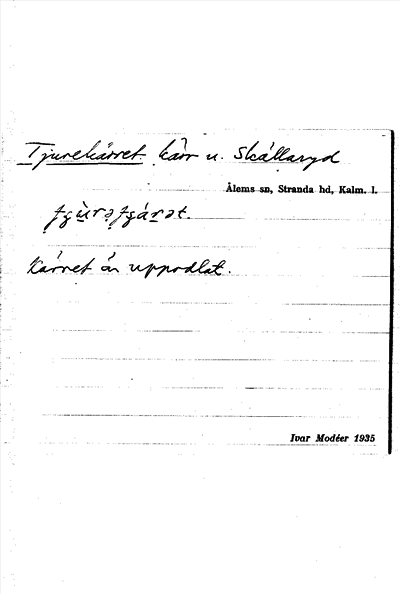 Tjurekärret kärr u. Skällaryd
Ålems sn, Stranda hd, Kalm. l.
Kärret är uppodlat.
Ivar Modéer 1935